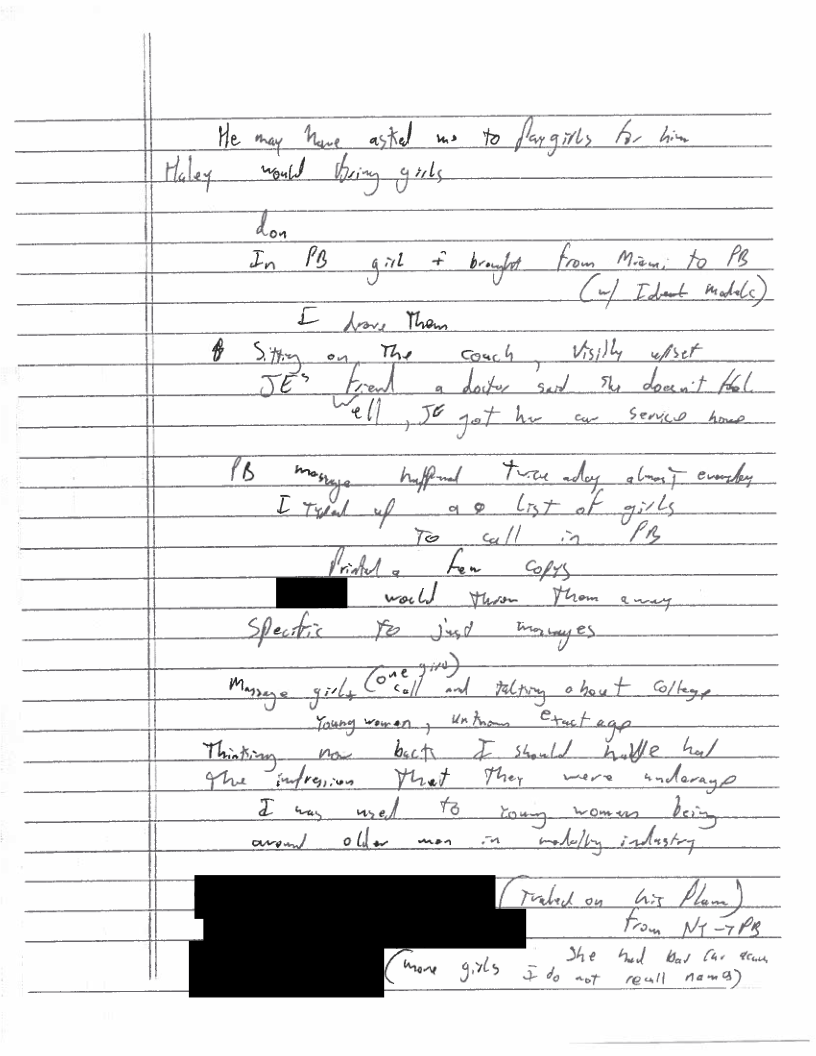 He may have asked me to pay girls for him
Haley would bring girls
don
In PB girl I brought from Miami to PB
(w/ Ident models)
I drove Them
Sitting on The couch, visilly upset
JE's friend a doctor said she doesn't feel
well, JE got her car service home
PB massage happened twice aday almost everyday
I Typed up a list of girls
To call in PB
Printed a few copys
would throw them away
Specific to just massages
Massage girls (one girl) call and talking about College
Young women, unknown exact age
Thinking now back I should have had
The impression That They were underage
I was used to Young women being
around older men in modeling industry
(Traveled on his Plane)
from NY → PB
(more girls I do not recall names)
She had bad car